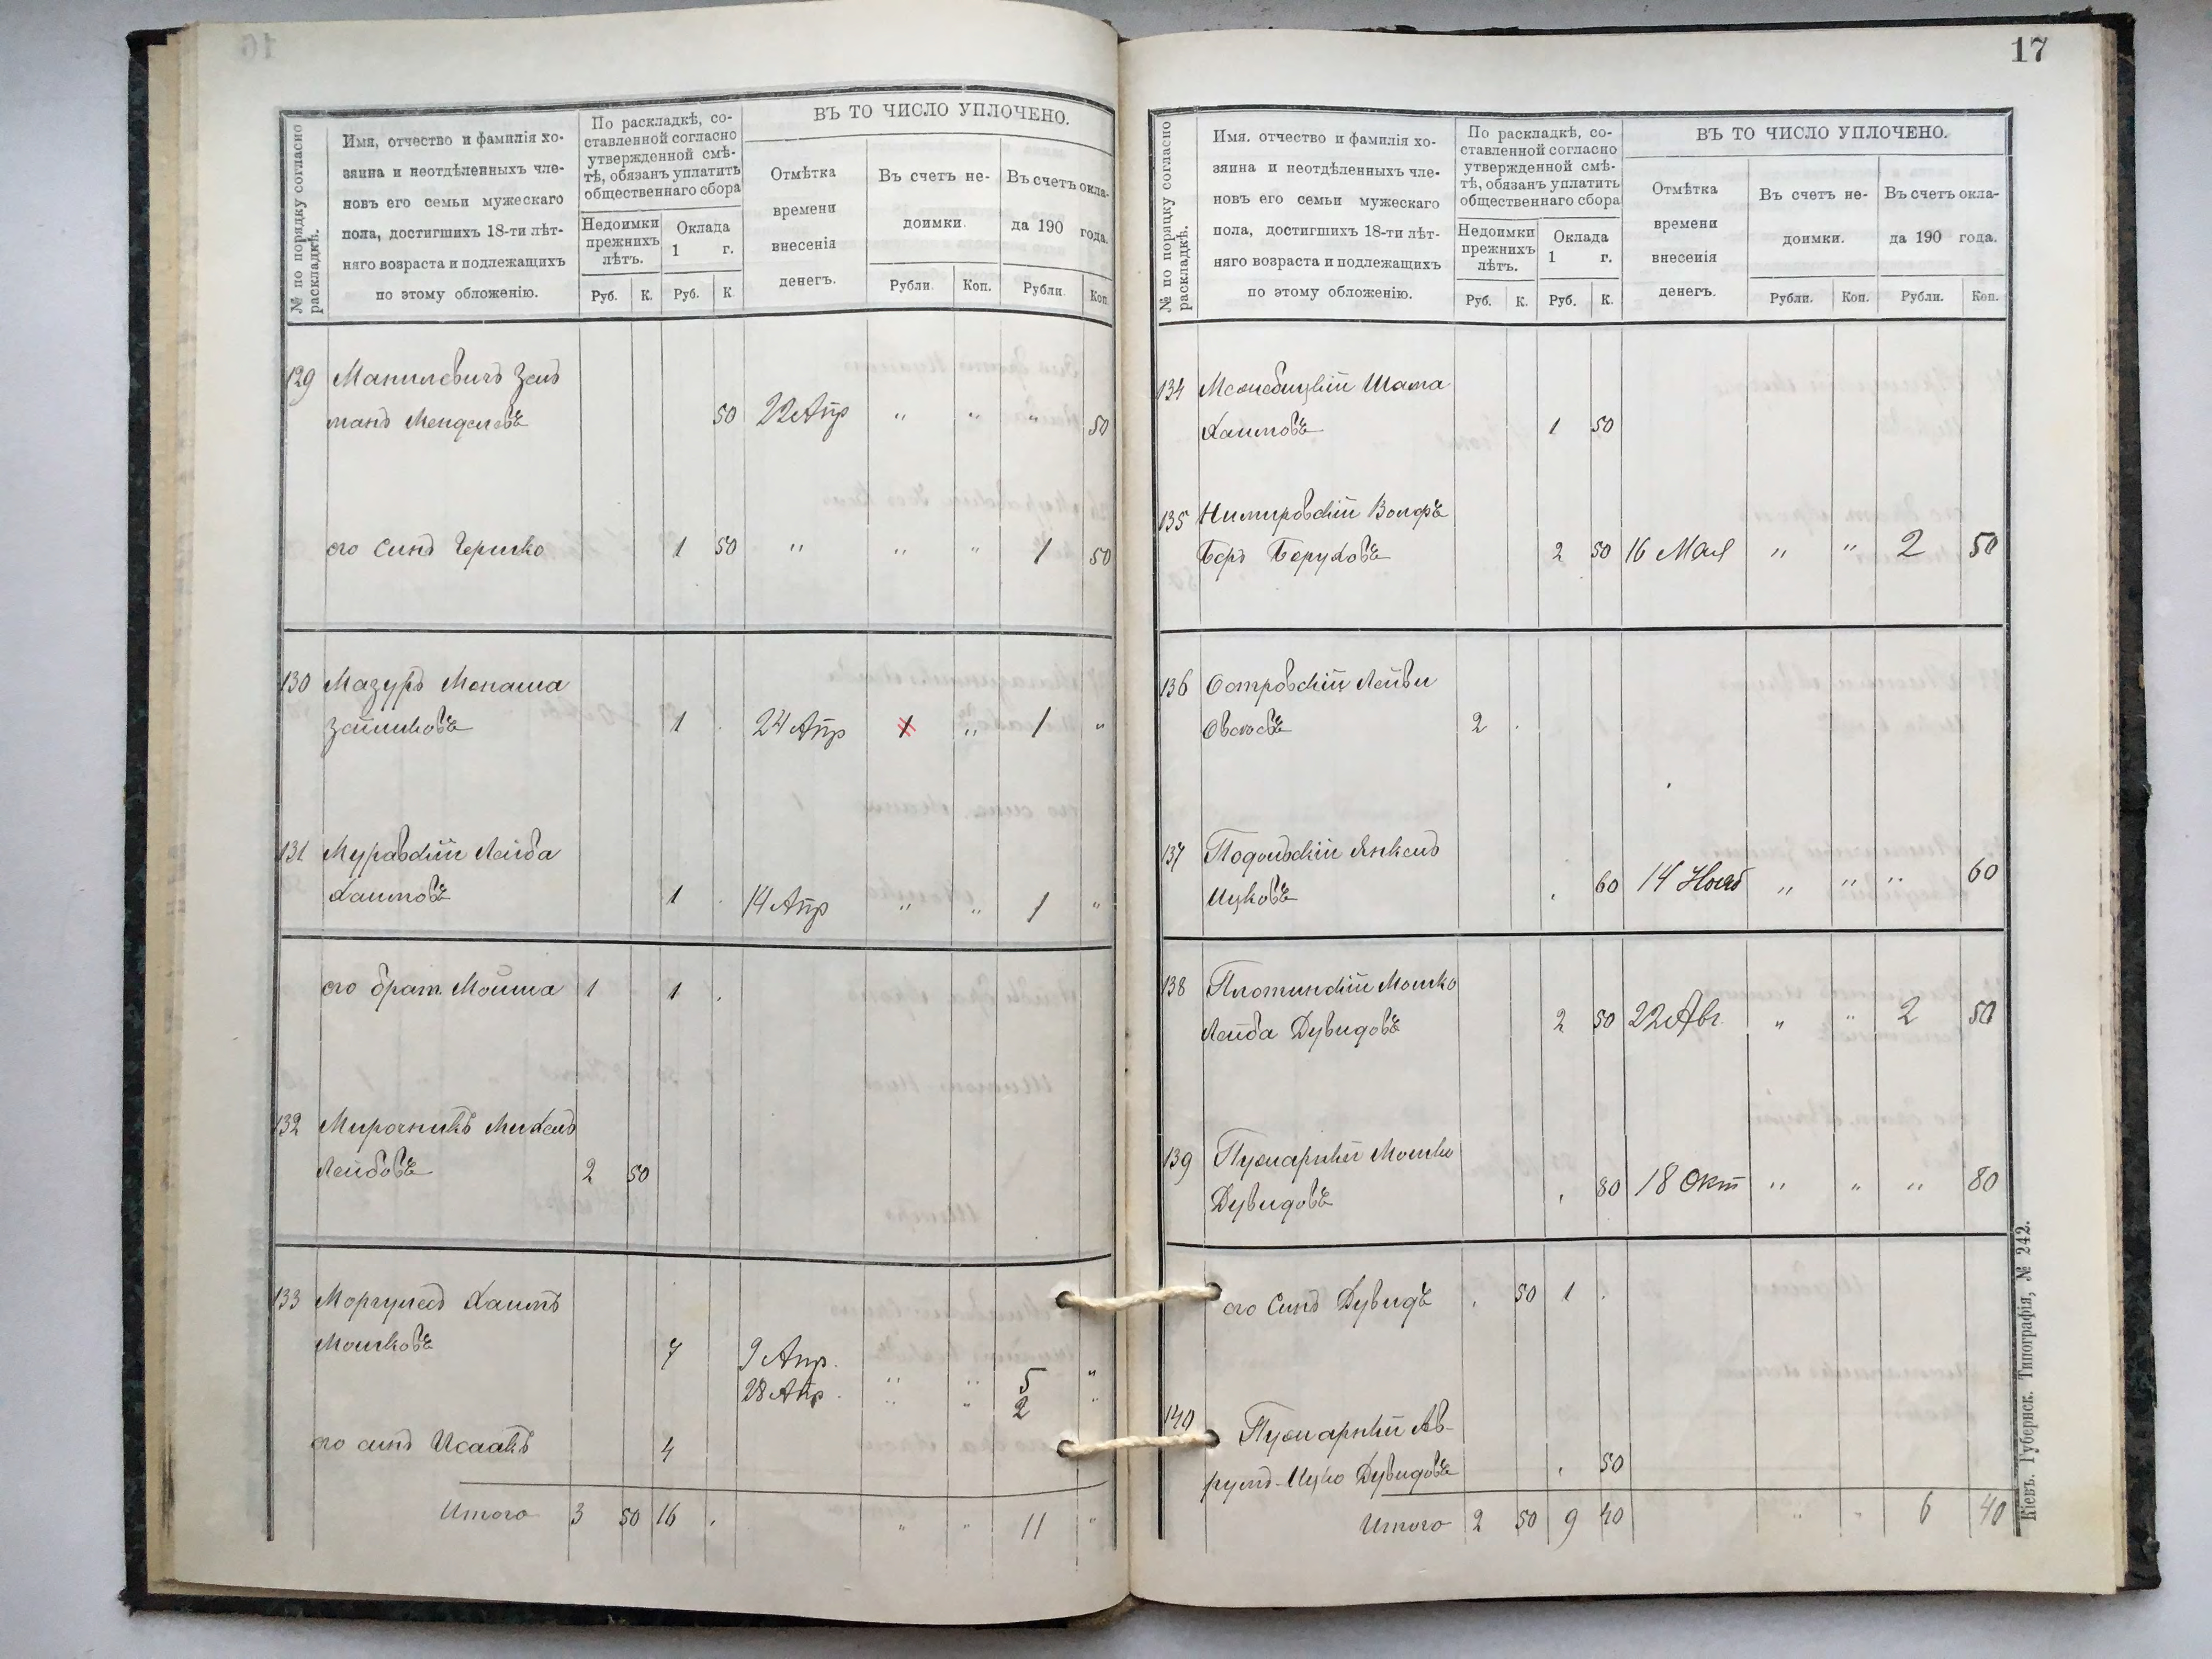 № по порядку согласно раскладкѣ.
Имя, отчество и фамилія хо-
зяина и неотдѣленныхъ чле-
новъ его семьи мужескаго
пола, достигшихъ 18-ти лѣт-
няго возраста и подлежащихъ
по этому обложенію.
По раскладкѣ, со-
ставленной согласно
утвержденной смѣ-
тѣ, обязанъ уплатить
общественнаго сбора
Недоимки
прежнихъ
лѣтъ.
Оклада
1 г.
Руб. К. Руб. К.
ВЪ ТО ЧИСЛО УПЛОЧЕНО.
Отмѣтка
времени
внесенія
денегъ.
Въ счетъ не-
доимки.
Въ счетъ окла-
да 190 года.
Рубли. Коп. Рубли. Коп.
129 Манилевичъ Зель
манъ Менделевъ 50 22 Апр " " " 50
его сынъ Гершко 1 50 " " " 1 50
130 Мазуръ Менаша
Зайликовъ 1 . 24 Апр 1 " 1 "
131 Муравскій Лейба
Хаимовъ 1 . 14 Апр " " 1 "
его брат. Мойша 1 1 .
132 Мирочникъ Михель
Лейбовъ 2 50
133 Моргулесъ Хаимъ
Мошковъ 7 9 Апр. " " 5 "
28 Апр. " " 2 "
его сынъ Исаакъ 4
Итого 3 50 16 . " " 11 "
17
№ по порядку согласно раскладкѣ.
Имя, отчество и фамилія хо-
зяина и неотдѣленныхъ чле-
новъ его семьи мужескаго
пола, достигшихъ 18-ти лѣт-
няго возраста и подлежащихъ
по этому обложенію.
По раскладкѣ, со-
ставленной согласно
утвержденной смѣ-
тѣ, обязанъ уплатить
общественнаго сбора
Недоимки
прежнихъ
лѣтъ.
Оклада
1 г.
Руб. К. Руб. К.
ВЪ ТО ЧИСЛО УПЛОЧЕНО.
Отмѣтка
времени
внесенія
денегъ.
Въ счетъ не-
доимки.
Въ счетъ окла-
да 190 года.
Рубли. Коп. Рубли. Коп.
134 Межебицкій Шама
Хаимовъ 1 50
135 Нимировскій Вольфъ
Беръ Беруховъ 2 50 16 Мая " " 2 50
136 Островскій Лейви
2 .
137 Подольскій Янкель
Ицковъ . 60 14 Нояб " " " 60
138 Плотинскій Мошко
Лейба Дувидовъ 2 50 22 Авг. " " 2 50
139 Пужарный Мошко
Дувидовъ . 80 18 Окт " " " 80
его сынъ Дувидъ . 50 1 .
140 Пужарный Ав-
румъ-Ицко Дувидовъ . 50
Итого 2 50 9 40 " " 6 40
Кіевъ. Губернск. Типографія, № 242.